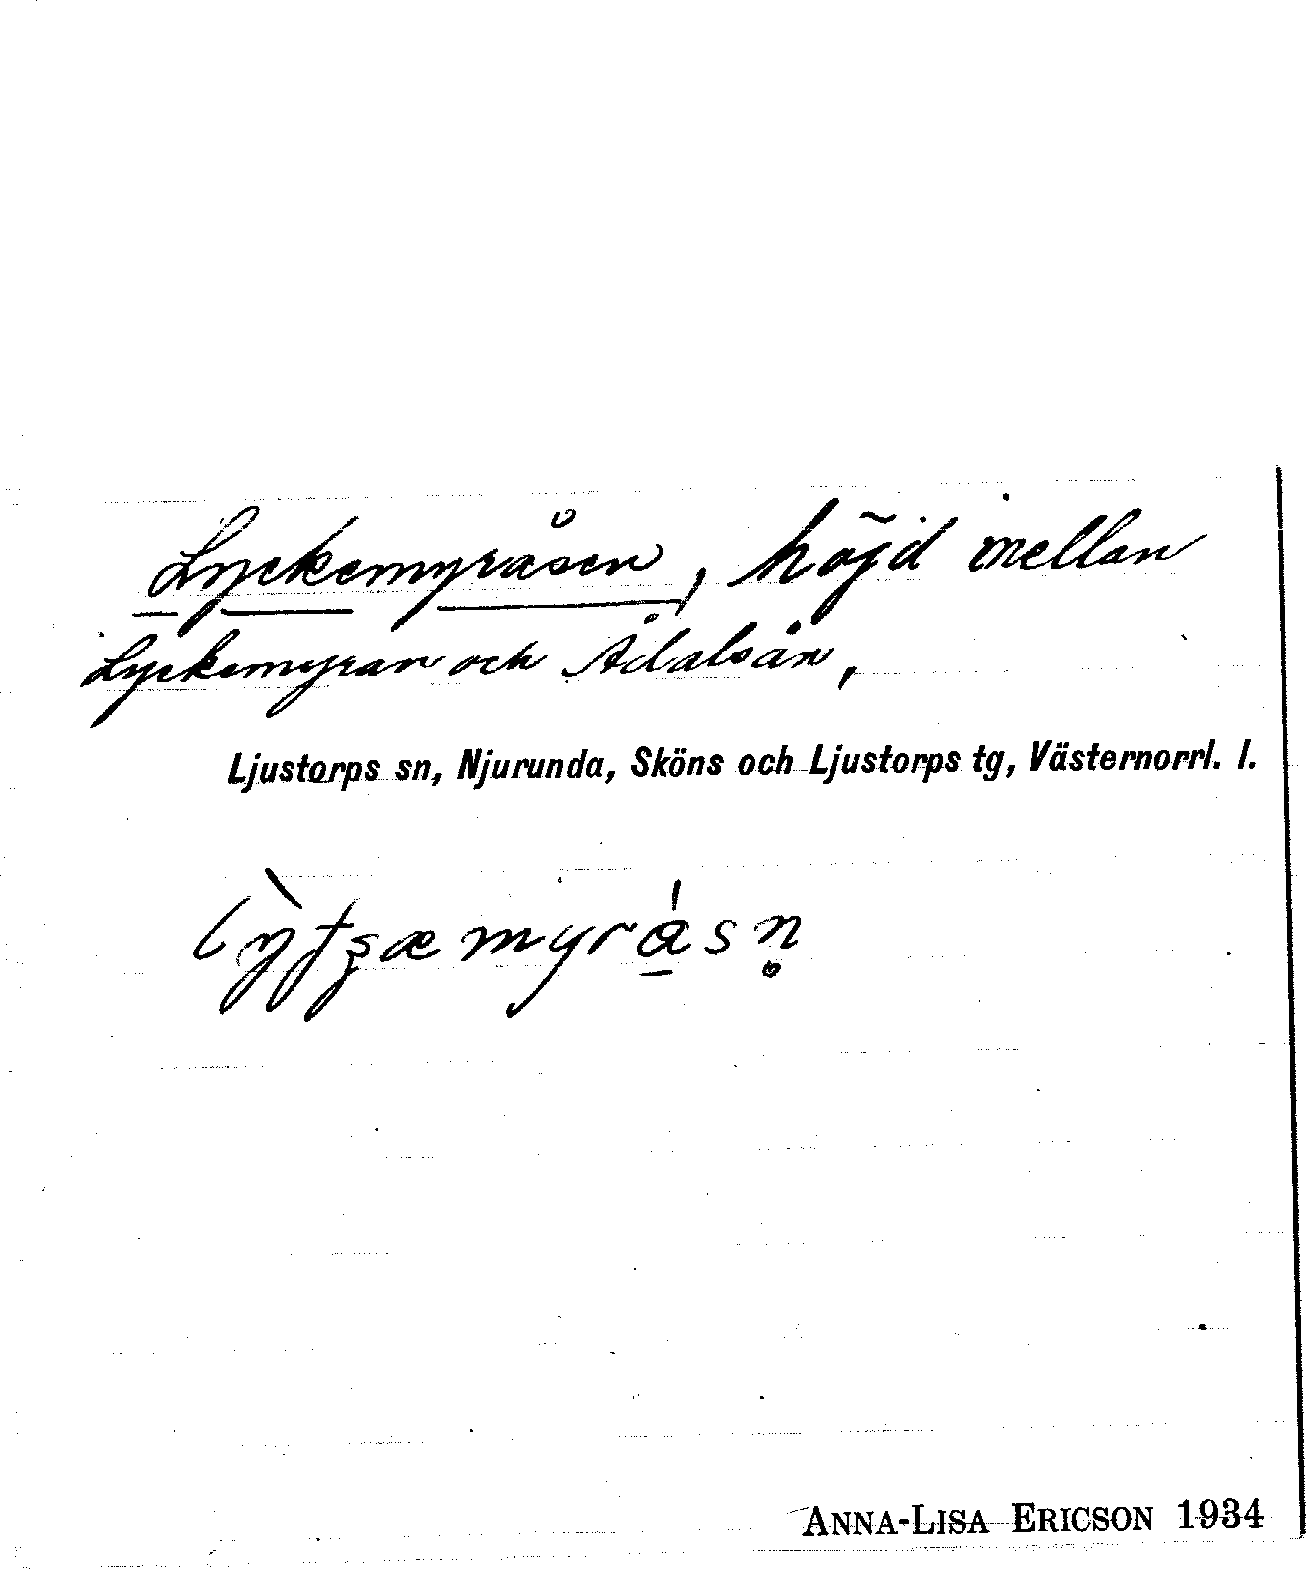 Lyckemyråsen, höjd mellan
Lyckemyran och Ådalsån,
Ljustorps sn, Njurunda, Sköns och Ljustorps tg, Västernorrl. l.
ANNA-LISA ERICSON 1934